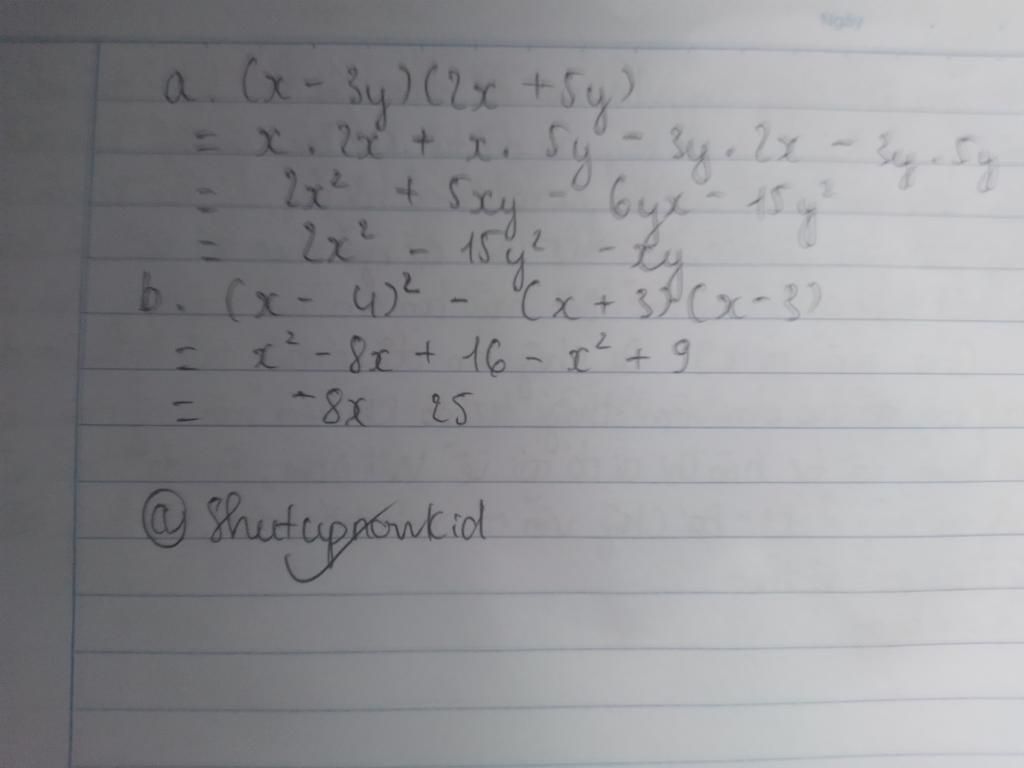 Ngày
a. (x - 3y)(2x + 5y)
= x . 2x + x . 5y - 3y . 2x - 3y . 5y
= 2x² + 5xy - 6yx - 15y²
= 2x² - 15y² - xy
b. (x - 4)² - (x + 3)(x - 3)
= x² - 8x + 16 - x² + 9
= -8x 25
@shutupnowkid